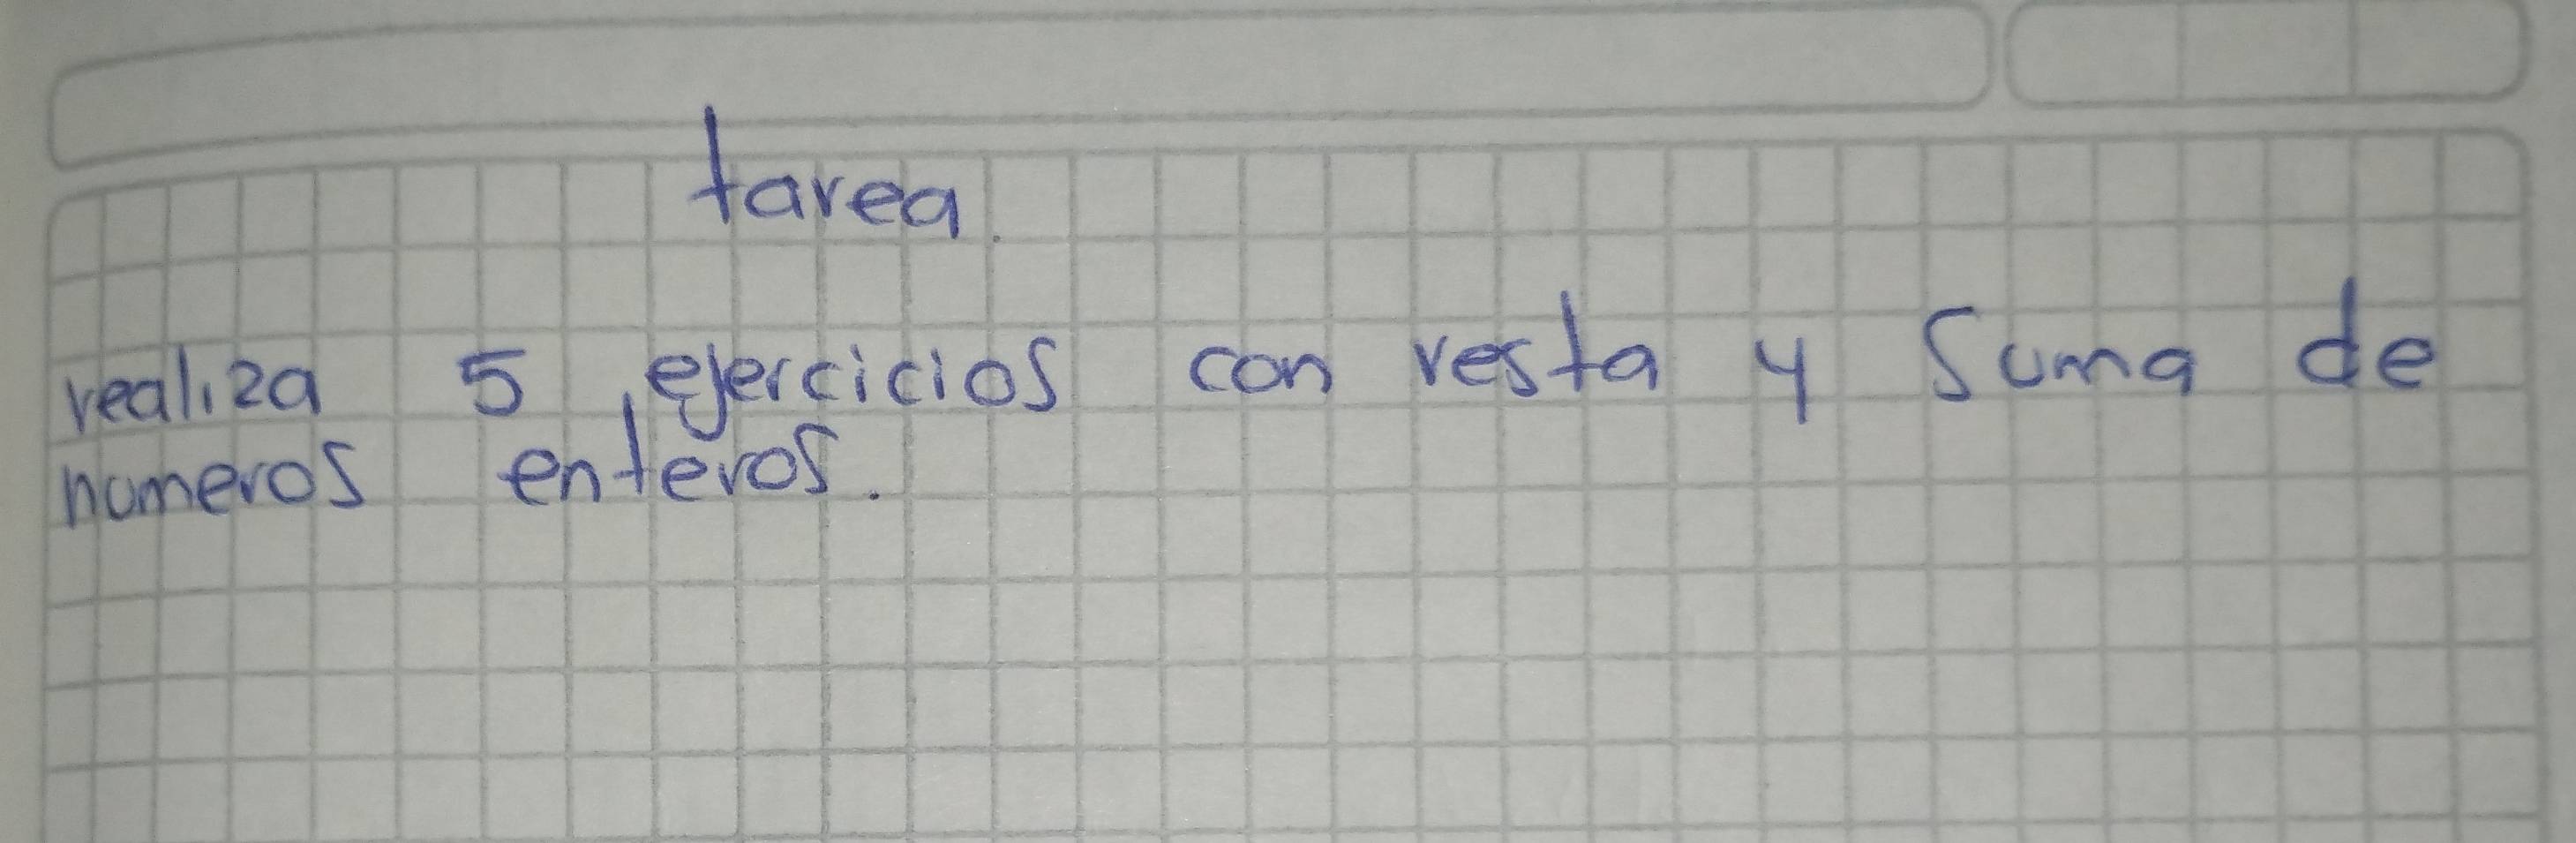 tarea.
realiza 5 ejercicios con resta y suma de
numeros enteros.